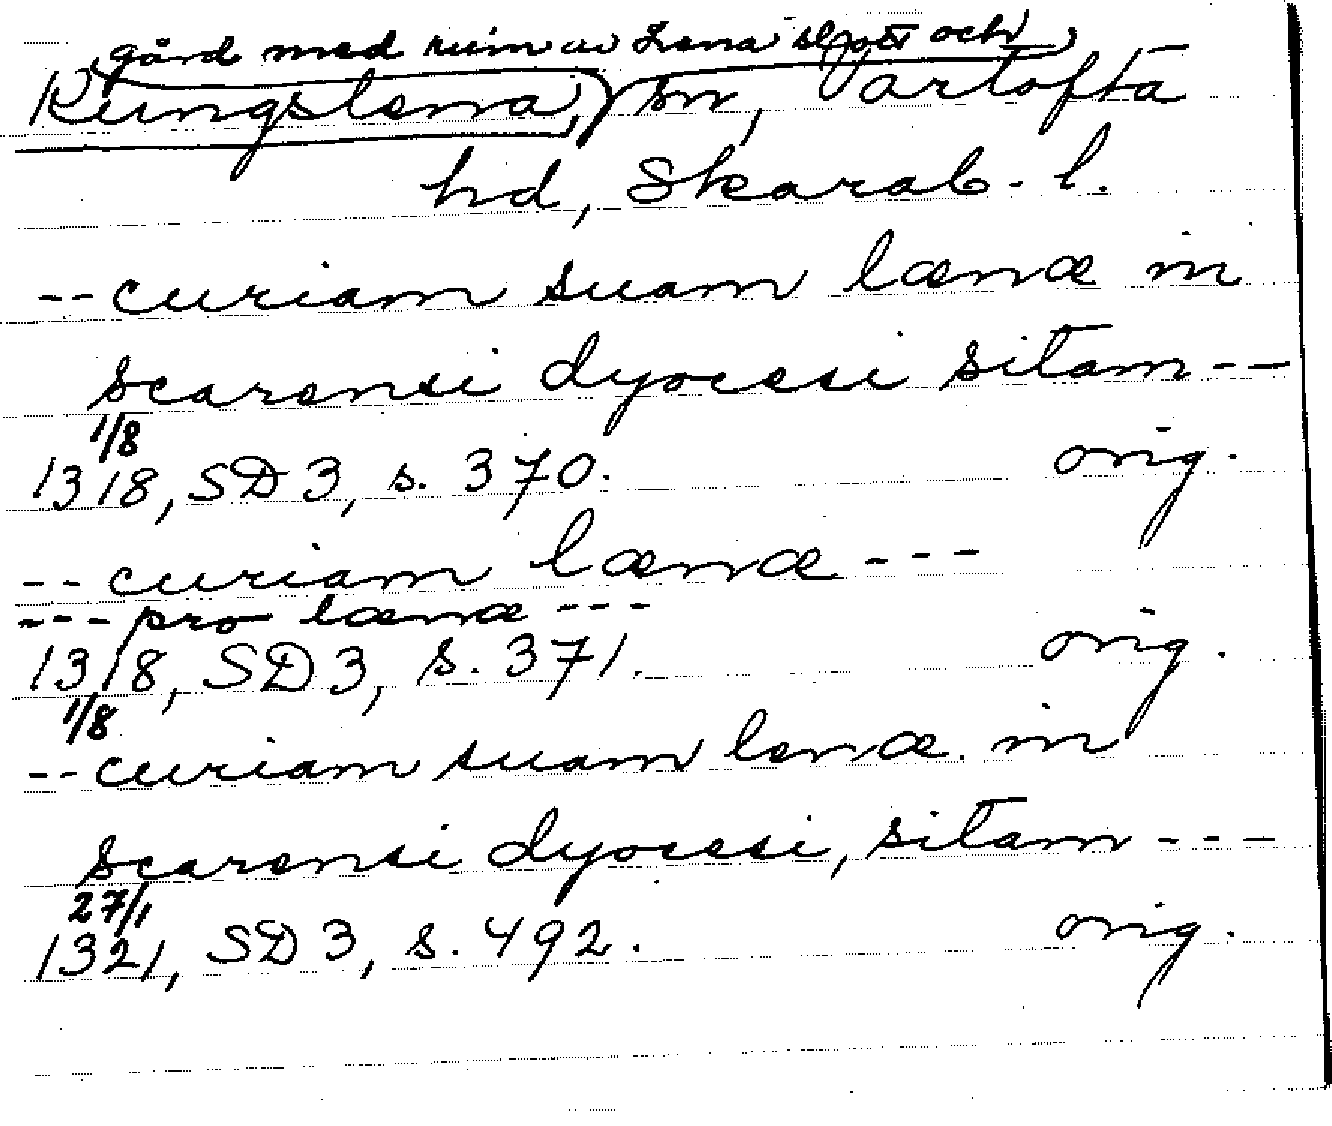 gård med ruin av Lena slott och
Kungslena, sn, Vartofta
hd, Skarab. l.
-- curiam suam lænæ in
scarensi dyocesi sitam --
1/8
1318, SD 3, s. 370. orig.
-- curiam lænæ ---
--- pro lænæ ---
1318, SD 3, s. 371. orig.
1/8
-- curiam suam lenæ in
scarensi dyocesi, sitam ---
27/1
1321, SD 3, s. 492. orig.